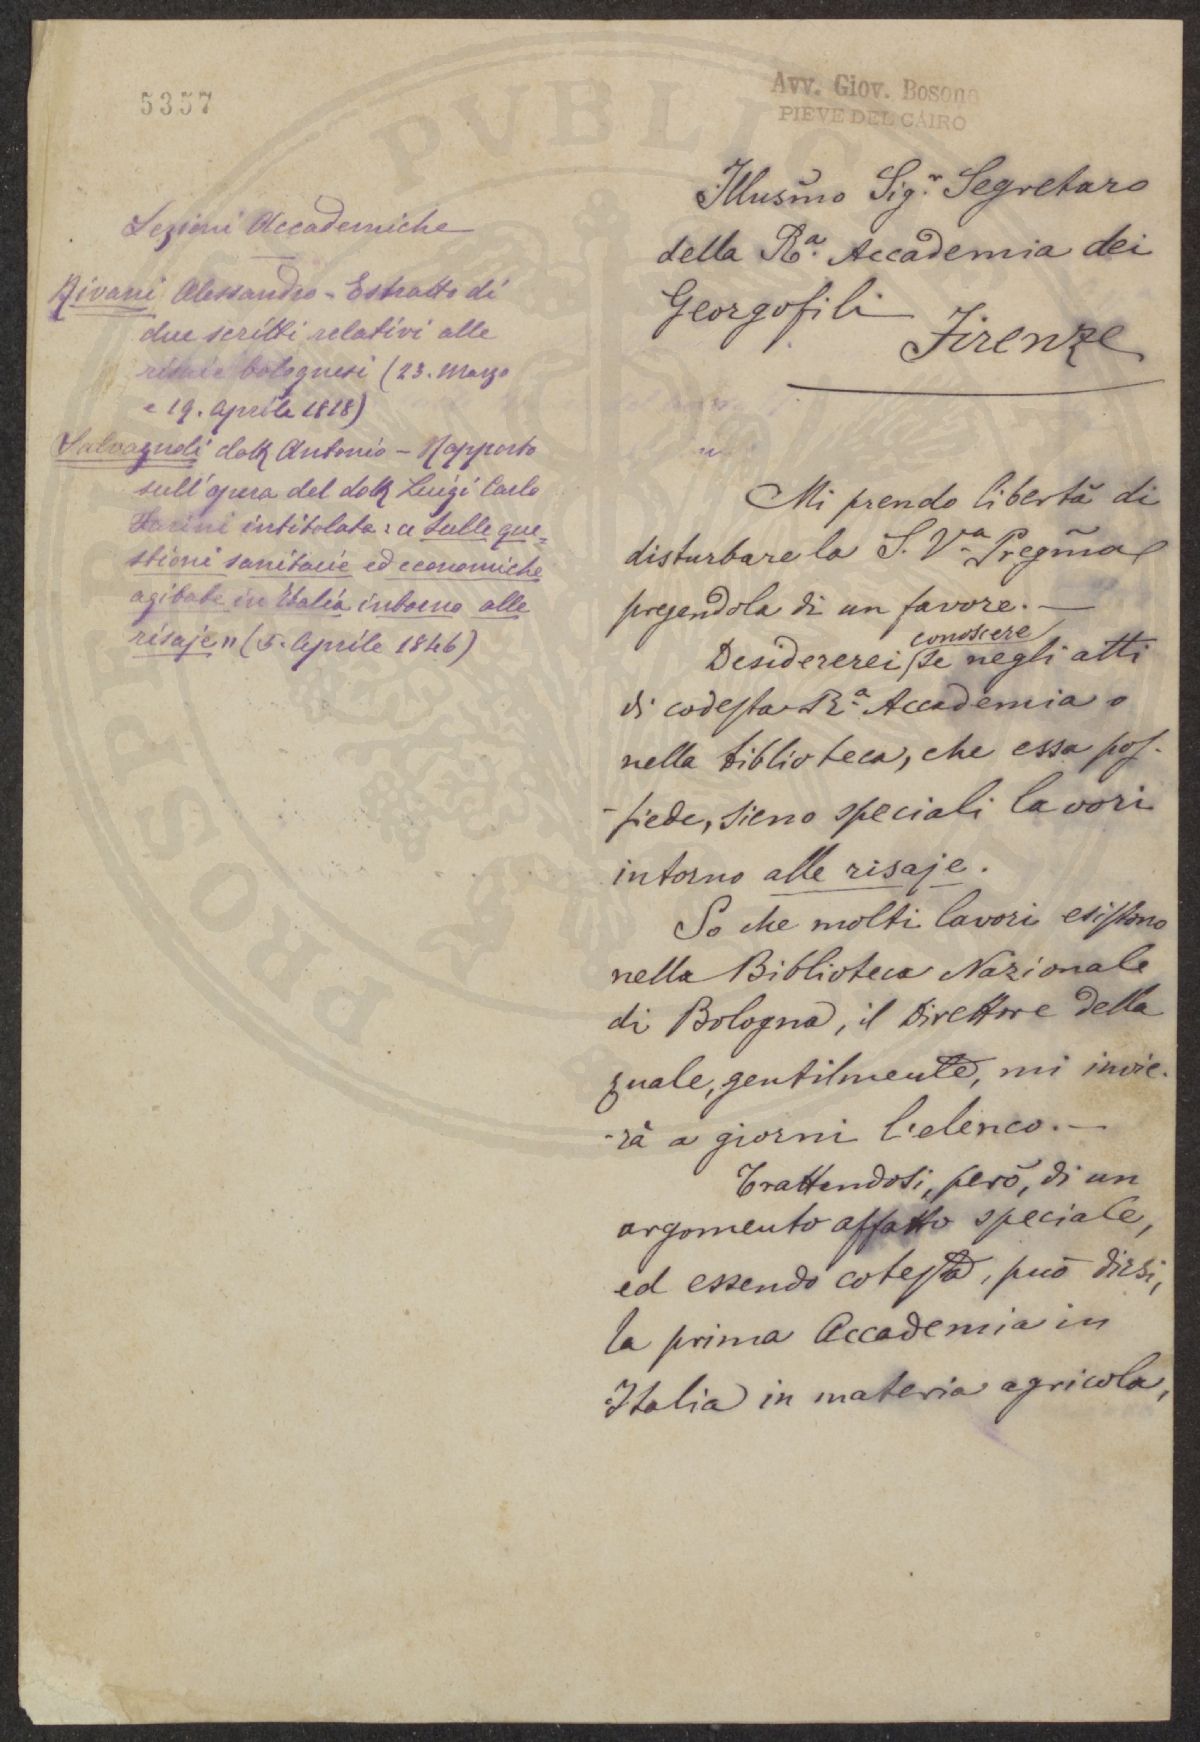 5357
Avv. Giov. Bosono
PIEVE DEL CAIRO
Illusm̃o Sig.r Segretaro
della R.a Accademia dei
Georgofili
Firenze
Lezioni Accademiche
Rivani Alessandro - Estratto di
due scritti relativi alle
risaie bolognesi (23. Marzo
e 19. Aprile 1818)
Salvagnoli dott Antonio - Rapporto
sull'opera del dott Luigi Carlo
Farini intitolata: « Sulle que=
stioni sanitarie ed economiche
agitate in Italia intorno alle
risaje » (5. Aprile 1846)
Mi prendo libertà di
disturbare la S. V.a Pregm̃a
pregandola di un favore. —
Desidererei conoscere se negli atti
di codesta R.a Accademia o
nella biblioteca, che essa pos-
-siede, sieno speciali lavori
intorno alle risaje.
So che molti lavori esistono
nella Biblioteca Nazionale
di Bologna, il Direttore della
quale, gentilmente, mi invie-
-rà a giorni l'elenco. —
Trattandosi, però, di un
argomento affatto speciale,
ed essendo cotesta, può dirsi,
la prima Accademia in
Italia in materia agricola,
PVBLIC